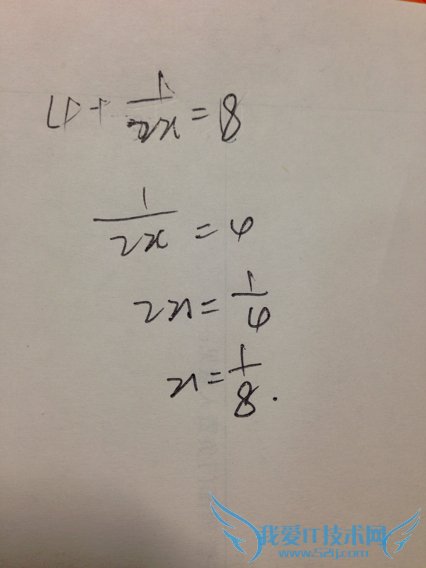 4 + 1/2x = 8
1/2x = 4
2x = 1/4
x = 1/8.
我爱IT技术网
www.52ij.com